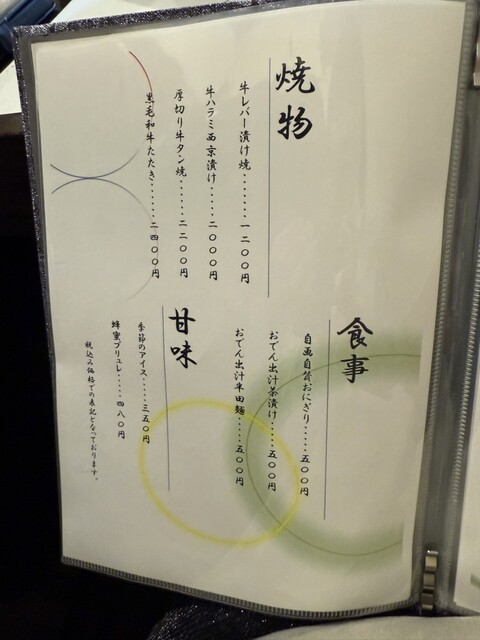 焼物
牛レバー漬け焼・・・・・・・一二〇〇円
牛ハラミ西京漬け・・・・・二〇〇〇円
厚切り牛タン焼・・・・・・・二二〇〇円
黒毛和牛たたき・・・・・・二四〇〇円
食事
自画自賛おにぎり・・・・・五〇〇円
おでん出汁茶漬け・・・・・五〇〇円
おでん出汁半田麺・・・・・五〇〇円
甘味
季節のアイス・・・・・三五〇円
蜂蜜ブリュレ・・・・・四八〇円
税込み価格での表記となっております。